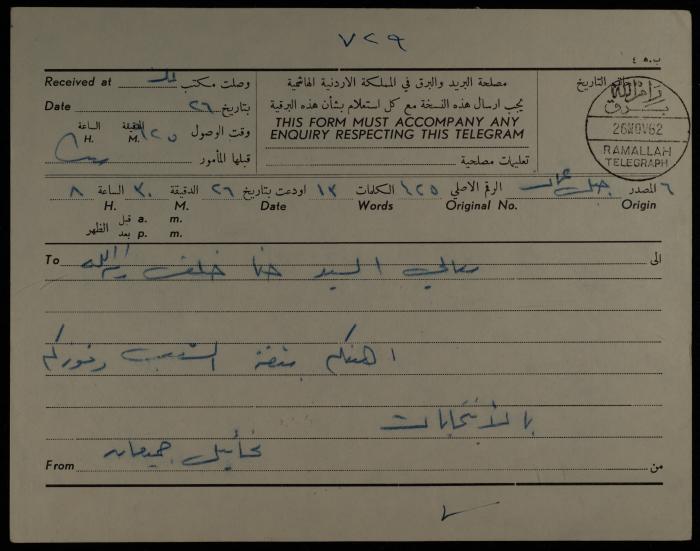 ٧٢٩
ب.ه ٤
Received at وصلت مكتب
مصلحة البريد والبرق في المملكة الاردنية الهاشمية
خاتم التاريخ
Date ٢٦ بتاريخ
يجب ارسال هذه النسخة مع كل استعلام بشأن هذه البرقية
THIS FORM MUST ACCOMPANY ANY
ENQUIRY RESPECTING THIS TELEGRAM
الساعة H. الدقيقة M. وقت الوصول
قبلها المأمور
تعليمات مصلحية
رام الله
برق
26 NOV 62
RAMALLAH
TELEGRAPH
المصدر جبل عمان الرقم الاصلي ٦٢٥ الكلمات ١٣ اودعت بتاريخ ٢٦ الدقيقة ٣٠ الساعة ٨
H. M. Date Words Original No. Origin
قبل a. m.
الظهر
بعد p. m.
To الى
معالي السيد حنا خلف رام الله
اهنئكم بثقة الشعب وفوزكم
بالأنتخابات
جميعان
From من